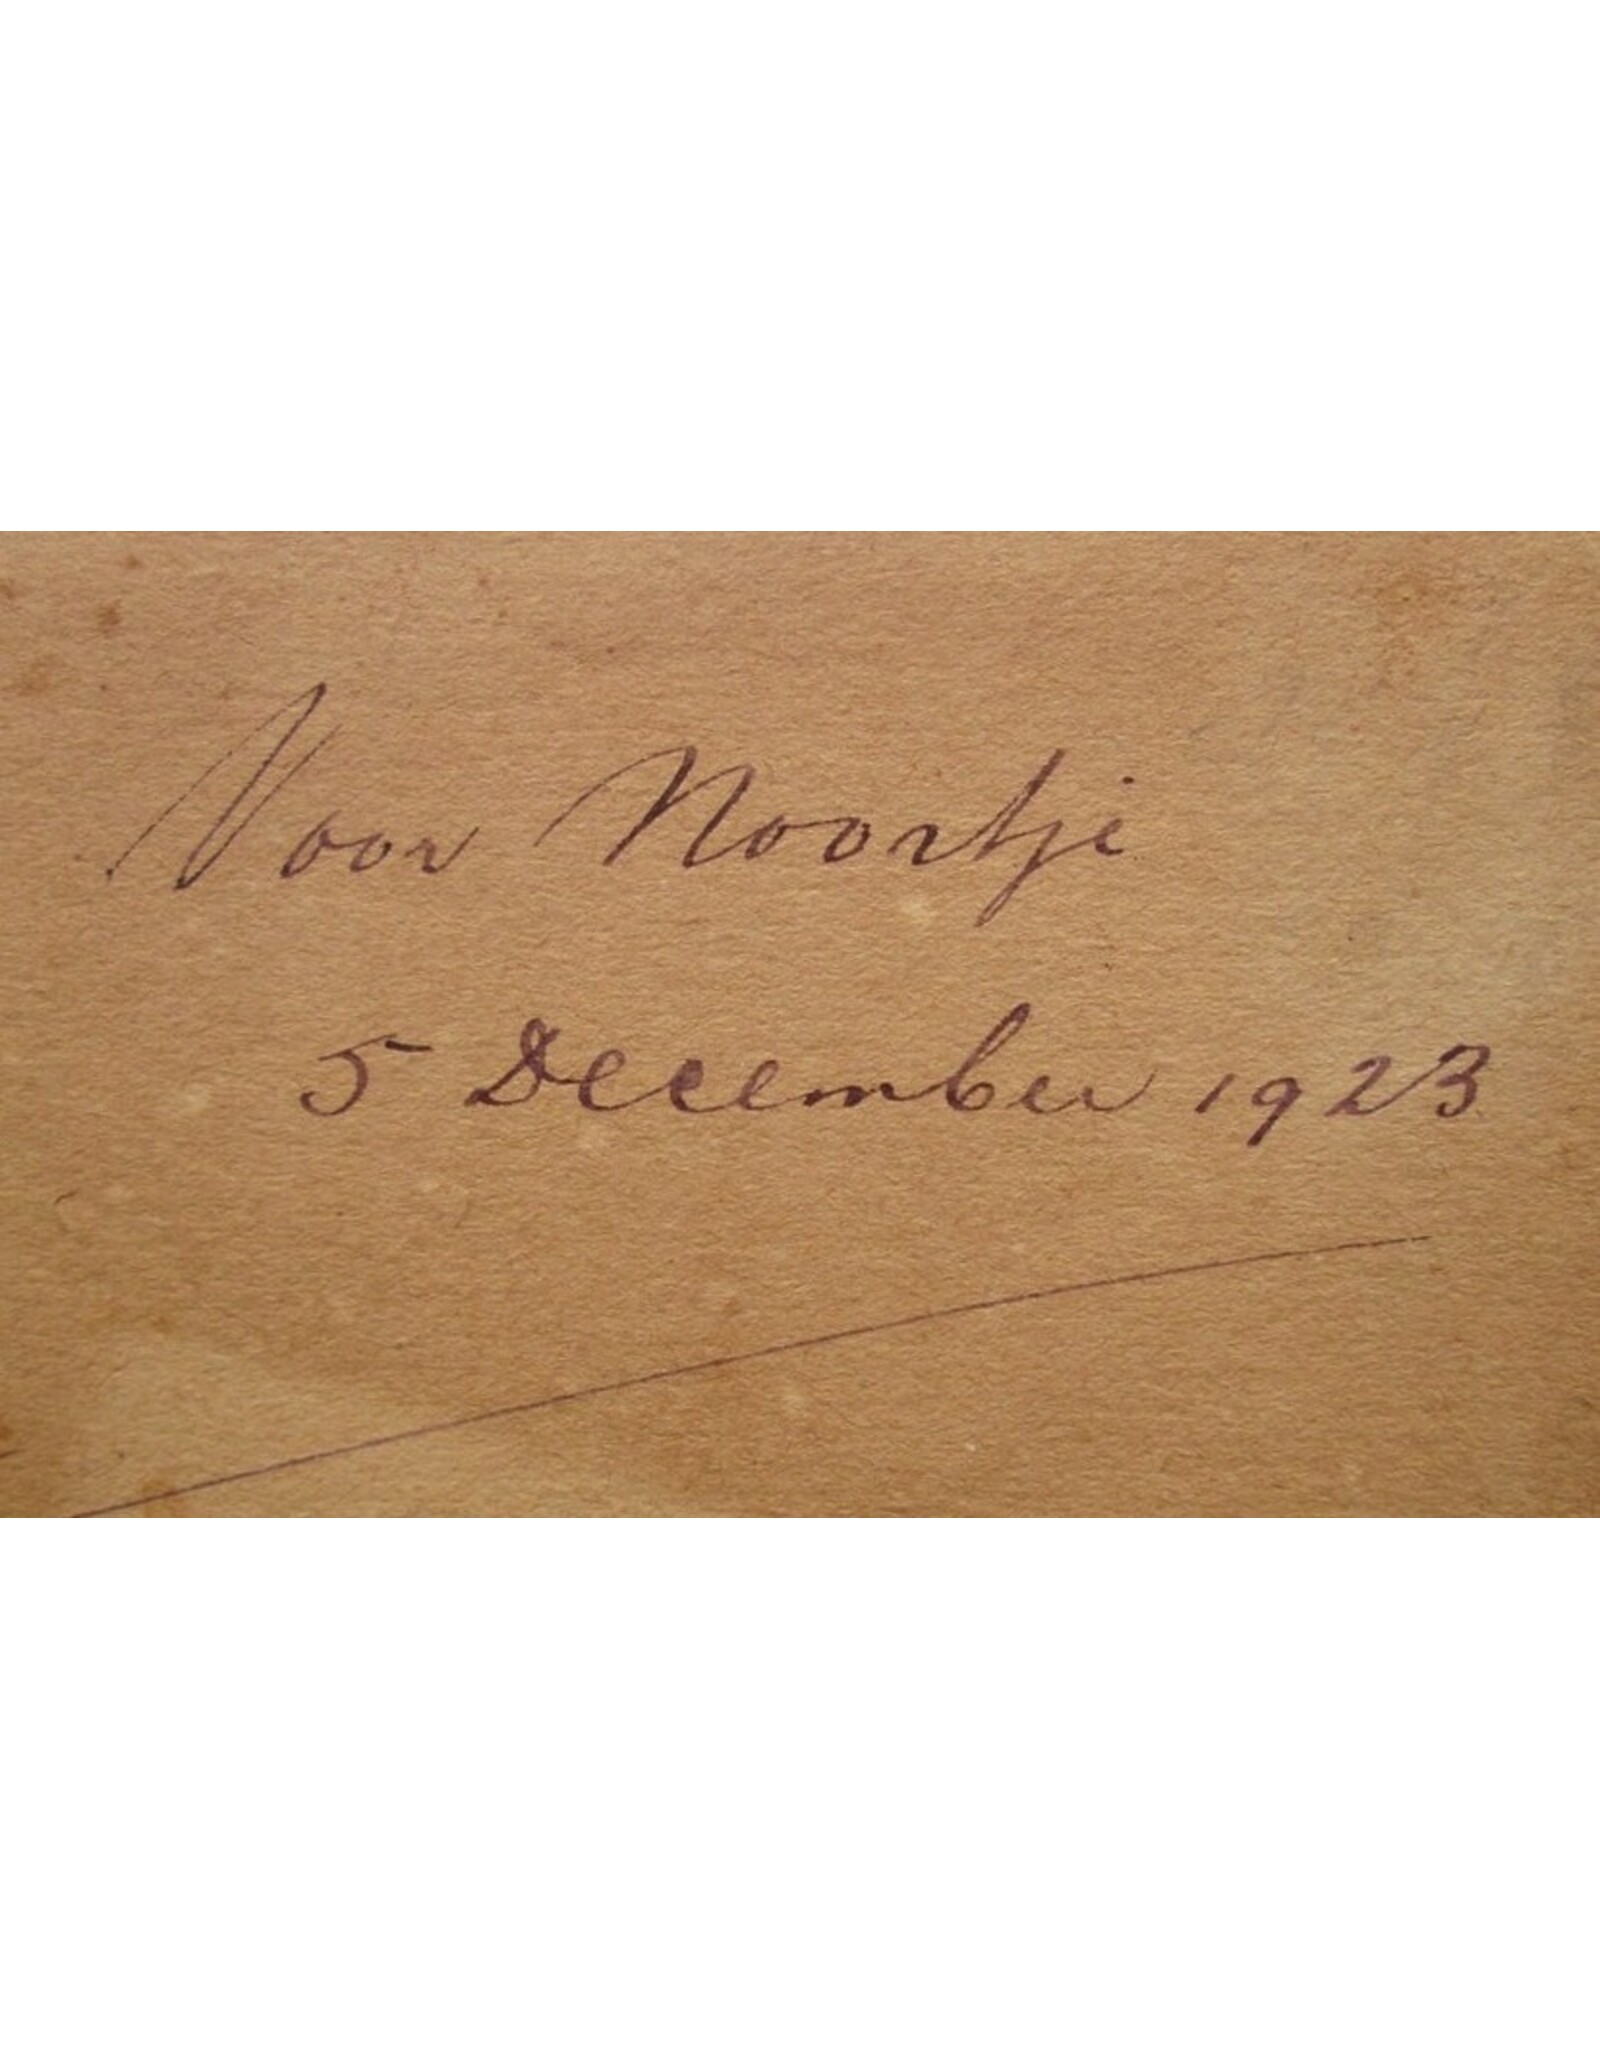 Voor Noortje
5 December 1923